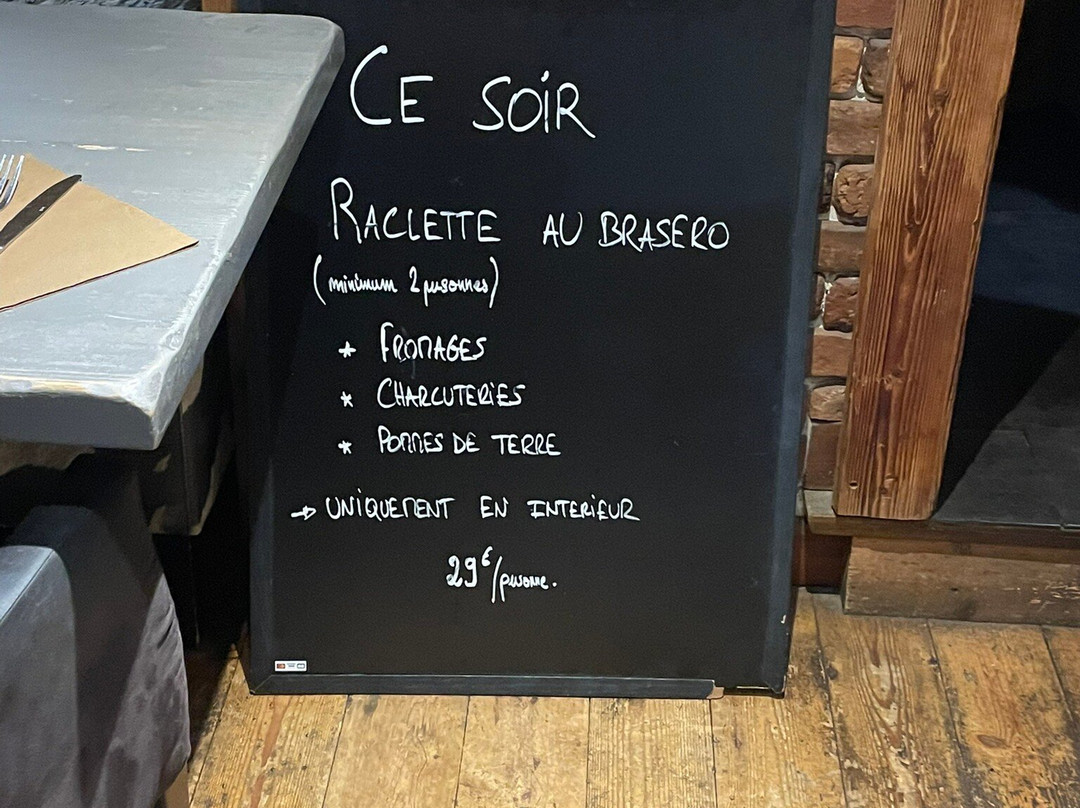 CE SOIR
RACLETTE AU BRASERO
(minimum 2 personnes)
* FROMAGES
* CHARCUTERIES
* POMMES DE TERRE
→ UNIQUEMENT EN INTERIEUR
29€/personne.